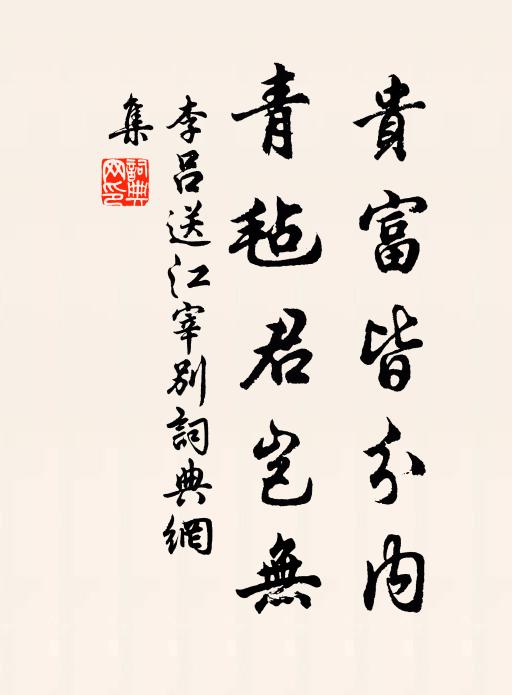 貴富皆分内
青毡君豈無
李呂送江宰別詞典網
集
詞典網印